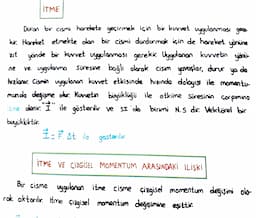 İTME
Duran bir cismi harekete geçirmek için bir kuvvet uygulanması gere-
kir. Hareket etmekte olan bir cismi durdurmak için de hareket yönüne
zıt yönde bir kuvvet uygulanması gerekir. Uygulanan kuvvetin yönü-
ne ve uygulanma süresine bağlı olarak cisim yavaşlar, durur ya da
hızlanır. Cismin uygulanan kuvvet etkisinde hızında dolayısı ile momentu-
munda değişme olur. Kuvvetin büyüklüğü ile etkime süresinin çarpımına
itme denir. I ile gösterilir ve SI da birimi N.s dir. Vektörel bir
büyüklüktür.
I = F Δt ile gösterilir
İTME VE ÇİZGİSEL MOMENTUM ARASINDAKİ İLİŞKİ
Bir cisme uygulanan itme cisme çizgisel momentum değişimi ola-
rak aktarılır. İtme çizgisel momentum değişimine eşittir.